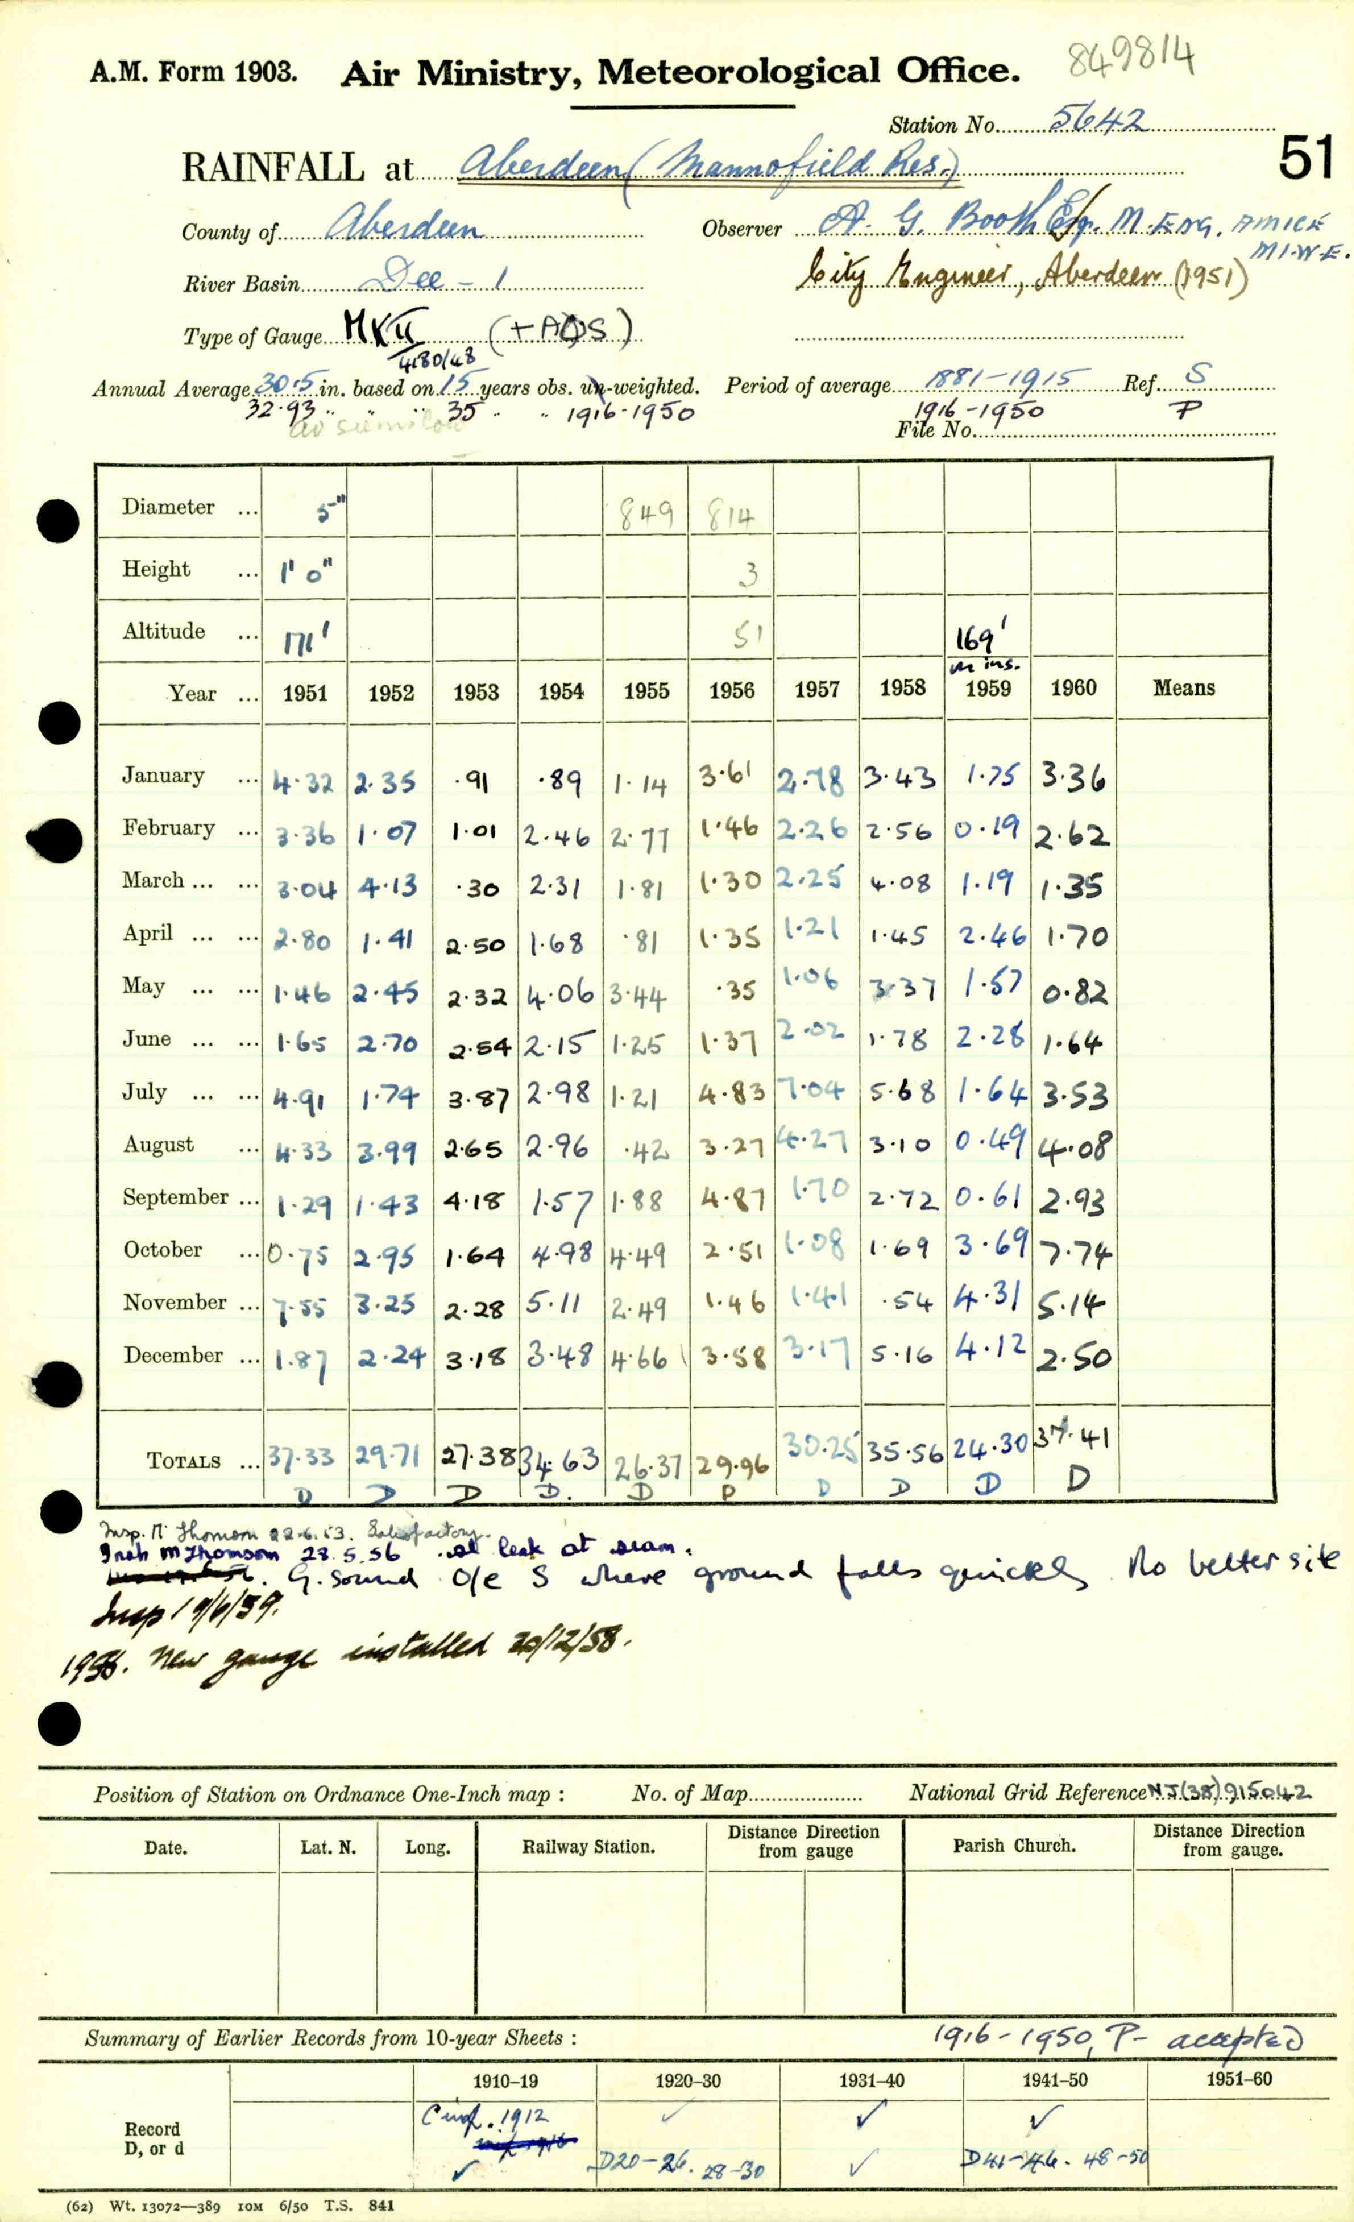 849814
A.M. Form 1903. Air Ministry, Meteorological Office.
Station No. 5642
51
RAINFALL at Aberdeen (Mannofield Res.)
County of Aberdeen Observer A. G. Booth Esq. M.Eng. AMICE
M.I.W.E.
River Basin Dee - 1 City Engineer, Aberdeen (1951)
Type of Gauge MK II
4180/48
Annual Average 30.5 in. based on 15 years obs. un-weighted. Period of average 1881-1915 Ref. S
32.93 " " " 35 " " 1916-1950 1916-1950 P
File No.
Diameter ... 5" 849 814
Height ... 1' 0" 3
Altitude ... 171' 51 169'
in ins.
Year ... 1951 1952 1953 1954 1955 1956 1957 1958 1959 1960 Means
January ... 4.32 2.35 .91 .89 1.14 3.61 2.78 3.43 1.75 3.36
February ... 3.36 1.07 1.01 2.46 2.77 1.46 2.26 2.56 0.19 2.62
March ... ... 3.04 4.13 .30 2.31 1.81 1.30 2.25 4.08 1.19 1.35
April ... ... 2.80 1.41 2.50 1.68 .81 1.35 1.21 1.45 2.46 1.70
May ... ... 1.46 2.45 2.32 4.06 3.44 .35 1.06 3.37 1.57 0.82
June ... ... 1.65 2.70 2.54 2.15 1.25 1.37 2.02 1.78 2.28 1.64
July ... ... 4.91 1.74 3.87 2.98 1.21 4.83 7.04 5.68 1.64 3.53
August ... 4.33 3.99 2.65 2.96 .42 3.27 4.27 3.10 0.49 4.08
September ... 1.29 1.43 4.18 1.57 1.88 4.87 1.70 2.72 0.61 2.93
October ... 0.75 2.95 1.64 4.98 4.49 2.51 1.08 1.69 3.69 7.74
November ... 7.55 3.25 2.28 5.11 2.49 1.46 1.41 .54 4.31 5.14
December ... 1.87 2.24 3.18 3.48 4.66 3.58 3.17 5.16 4.12 2.50
TOTALS ... 37.33 29.71 27.38 34.63 26.37 29.96 30.25 35.56 24.30 37.41
D D D D. D P D D D D
Insp. Mr Thomson 22.6.53. Satisfactory.
Insp. Mr Thomson 28.5.56 leak at seam.
G. Sound O/e S where ground falls quickly No better site
Insp 19/6/59.
1958. New gauge installed 20/12/58.
Position of Station on Ordnance One-Inch map : No. of Map National Grid Reference NJ(38)915042
Date. Lat. N. Long. Railway Station. Distance Direction from gauge Parish Church. Distance Direction from gauge.
Summary of Earlier Records from 10-year Sheets : 1916-1950, P- accepted
1910–19 1920–30 1931–40 1941–50 1951–60
Record 1912 ✓ ✓ ✓
D, or d ✓ D20-26. 28-30 ✓ D41-46. 48-50
(62) Wt. 13072—389 10M 6/50 T.S. 841